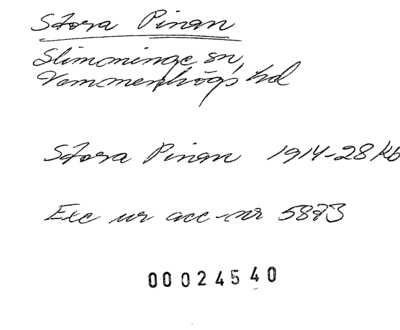 Stora Pinan
Slimminge sn,
Vemmenhögs hd
Stora Pinan 1914-28 kb
Exc ur acc-nr 5873
00024540